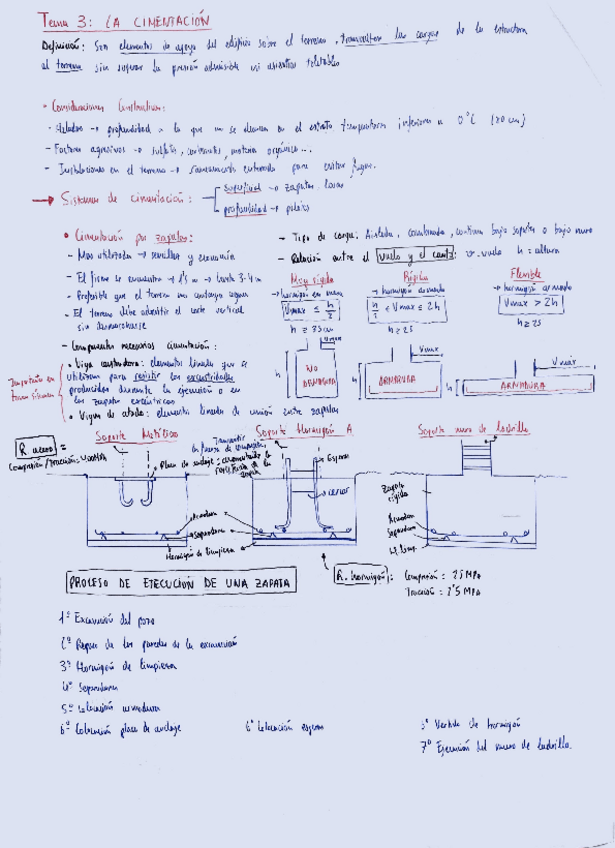 Tema 3: LA CIMENTACIÓN
Definición: Son elementos de apoyo del edificio sobre el terreno, transmiten las cargas de la estructura
al terreno sin superar la presión admisible ni asientos tolerables
• Consideraciones Constructivas:
- Heladas → profundidad a la que no se alcanza en el estrato temperaturas inferiores a 0°C (80 cm)
- Factores agresivos → sulfatos, carbonatos, materia orgánica...
- Instalaciones en el terreno → saneamiento enterrado para evitar fugas.
→ Sistemas de cimentación: superficial → zapatas, losas
profundidad → pilotes
• Cimentación por zapatas:
- Mas utilizadas → sencillez y economía
- El firme se encuentra → 1'5 m → hasta 3-4 m
- Preferible que el terreno no contenga agua
- El terreno debe admitir el corte vertical
sin desmoronarse
- Componentes necesarios cimentación:
• Viga centradora: elementos lineales que se
utilizan para resistir las excentricidades
producidas durante la ejecución o en
las zapatas excéntricas
• Vigas de atado: elementos lineales de unión entre zapatas
Importante en
zonas sísmicas
- Tipo de carga: Aislada, combinada, continua bajo soportes o bajo muro
- Relación entre el vuelo y el canto: v=vuelo h=altura
Muy rígida
→ hormigón en masa
Vmax ≤ h/2
h ≥ 35 cm
Vmax
h
NO ARMADURA
Rígida
→ hormigón armado
h/2 ≤ Vmax ≤ 2h
h ≥ 25
Vmax
h
ARMADURA
Flexible
→ hormigón armado
Vmax > 2h
h ≥ 25
Vmax
h
ARMADURA
R acero =
Compresión/tracción: 400MPa
Soporte Metálico
Placa de anclaje:
Armadura
Separadores
Hormigón de limpieza
Soporte Hormigón A
Esperas
cercos
Soporte muro de ladrillo
Zapata
rígida
Armadura
Separadores
H. limp.
R. hormigón: Compresión = 25 MPa
Tracción = 2'5 MPa
PROCESO DE EJECUCIÓN DE UNA ZAPATA
1º Excavación del pozo
2º Repaso de las paredes de la excavación
3º Hormigón de limpieza
4º Separadores
5º Colocación armadura
6º Colocación placa de anclaje
6º Colocación esperas
Vertido de hormigón
7º Ejecución del muro de ladrillo.